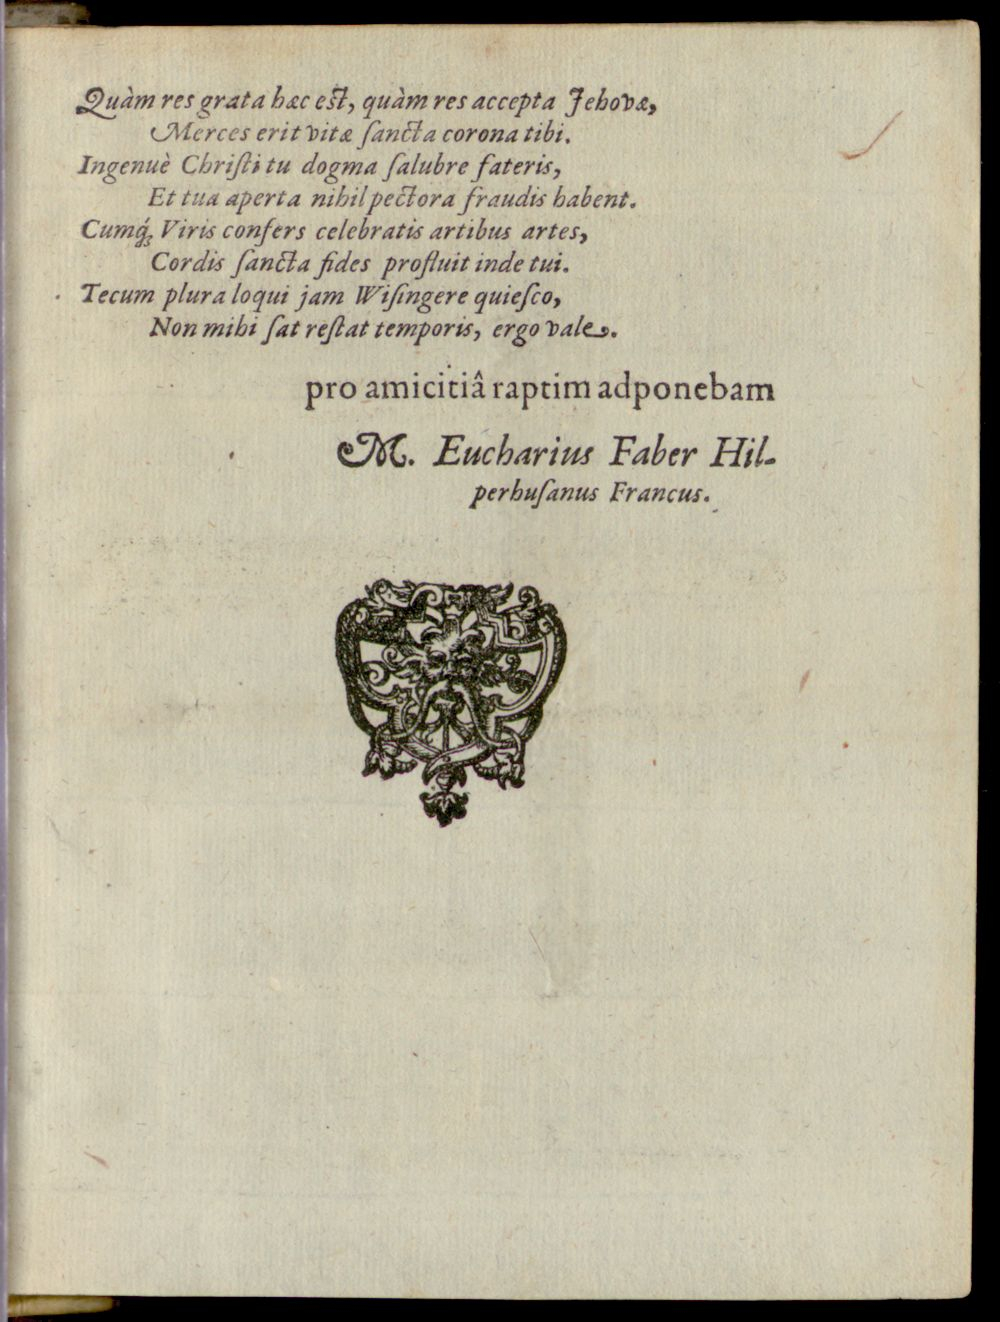 Quàm res grata hæc est, quàm res accepta Jehovæ,
Merces erit vitæ ſancta corona tibi.
Ingenuè Chriſti tu dogma ſalubre fateris,
Et tua aperta nihil pectora fraudis habent.
Cumq́; Viris confers celebratis artibus artes,
Cordis ſancta fides profluit inde tui.
Tecum plura loqui jam Wiſingere quieſco,
Non mihi ſat reſtat temporis, ergo vale.
pro amicitiâ raptim adponebam
M. Eucharius Faber Hil-
perhuſanus Francus.